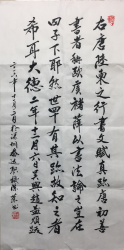 右唐陸柬之行书文賦真跡唐初善
書者稱歐虞褚薛以書法論之豈在
四子下耶然世罕有其跡故知之者
希耳大德二年十二月六日吳興趙孟頫跋